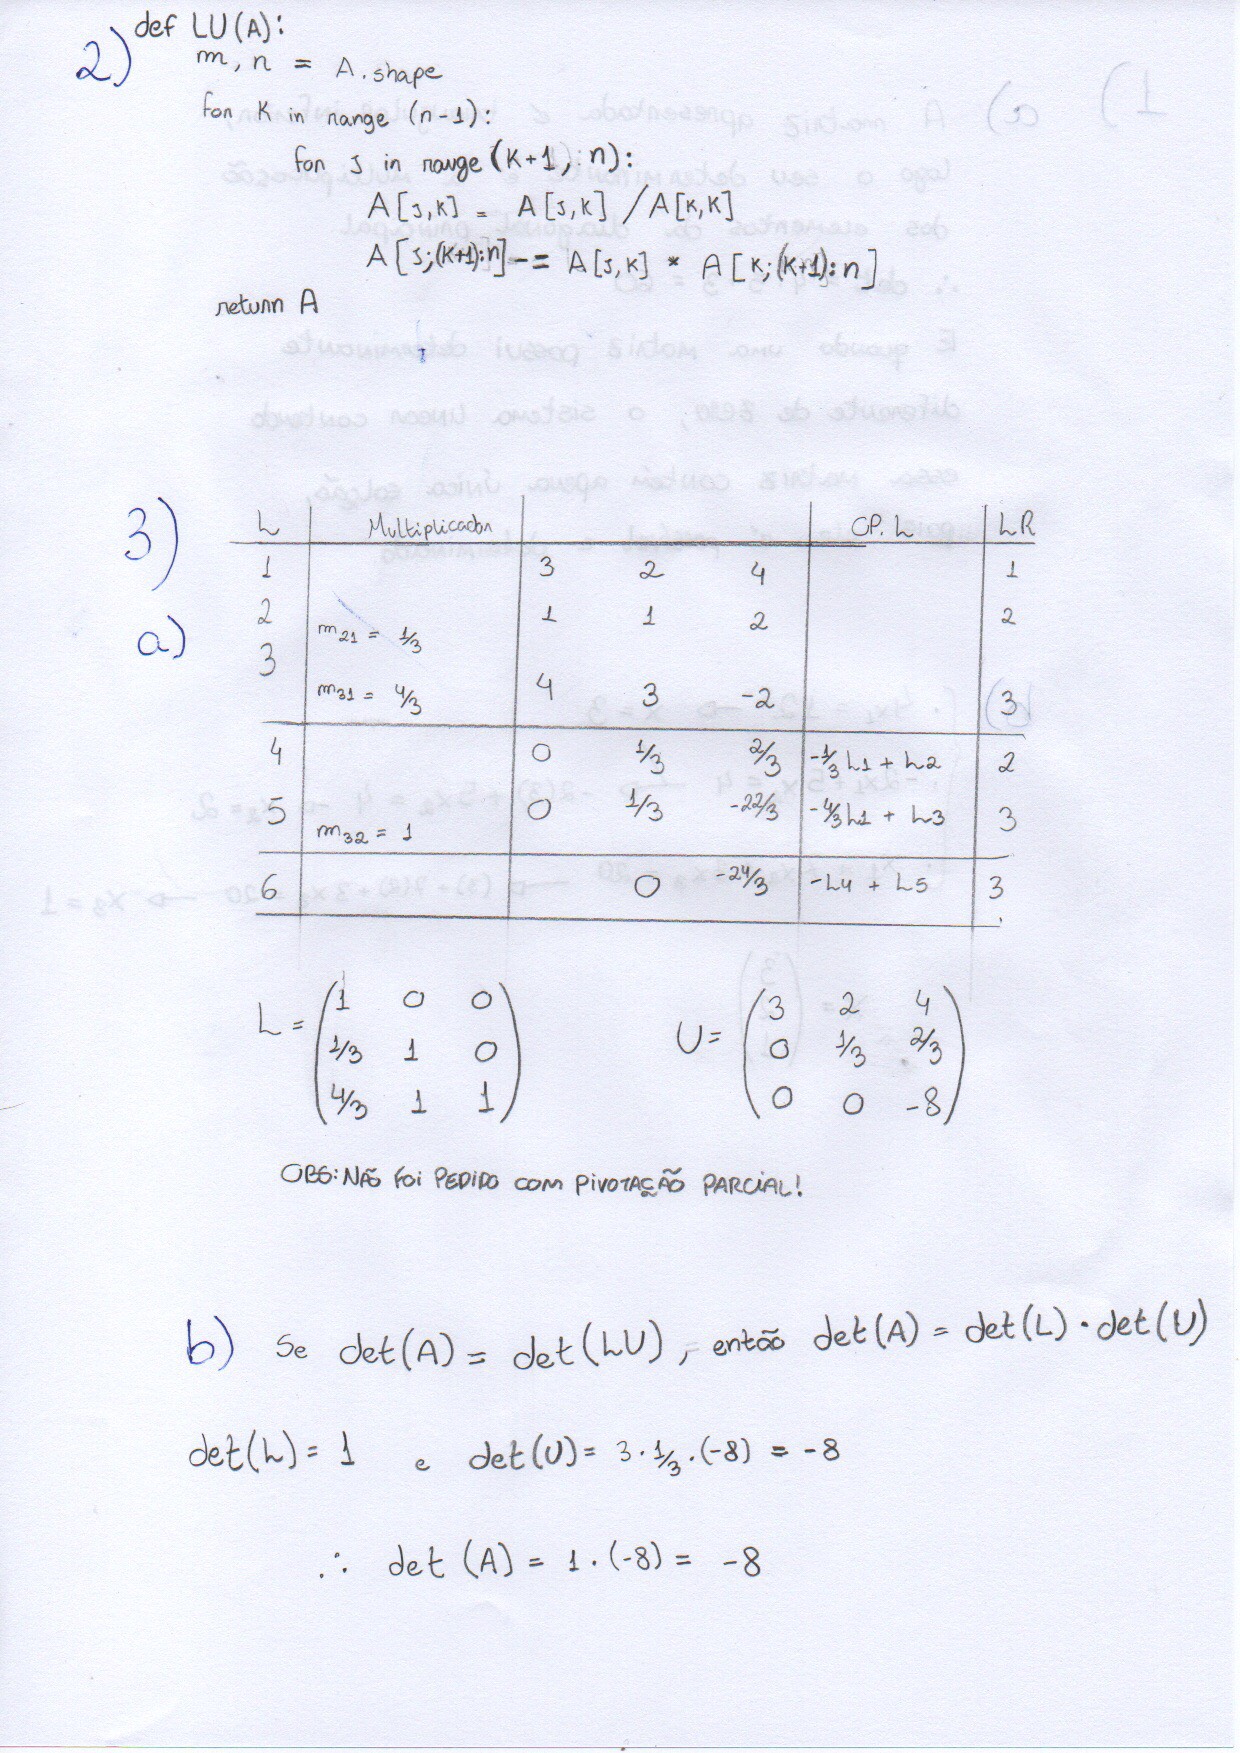 2) def LU(A):
m, n = A.shape
for K in range (n-1):
for J in range (K+1, n):
A[J,K] = A[J,K] / A[K,K]
A[J;(K+1):n] -= A[J,K] * A[K;(K+1):n]
return A
3)
a)
L Multiplicador OP. L LR
1 3 2 4 1
2 m21 = 1/3 1 1 2 2
3 m31 = 4/3 4 3 -2 3
4 0 1/3 2/3 -1/3 L1 + L2 2
5 m32 = 1 0 1/3 -22/3 -4/3 L1 + L3 3
6 0 -24/3 -L4 + L5 3
L = U =
1 0 0 3 2 4
1/3 1 0 0 1/3 2/3
4/3 1 1 0 0 -8
OBS: NÃO FOI PEDIDO COM PIVOTAÇÃO PARCIAL!
b) Se det(A) = det(LU), então det(A) = det(L) · det(U)
det(L) = 1 e det(U) = 3 · 1/3 · (-8) = -8
∴ det (A) = 1 · (-8) = -8